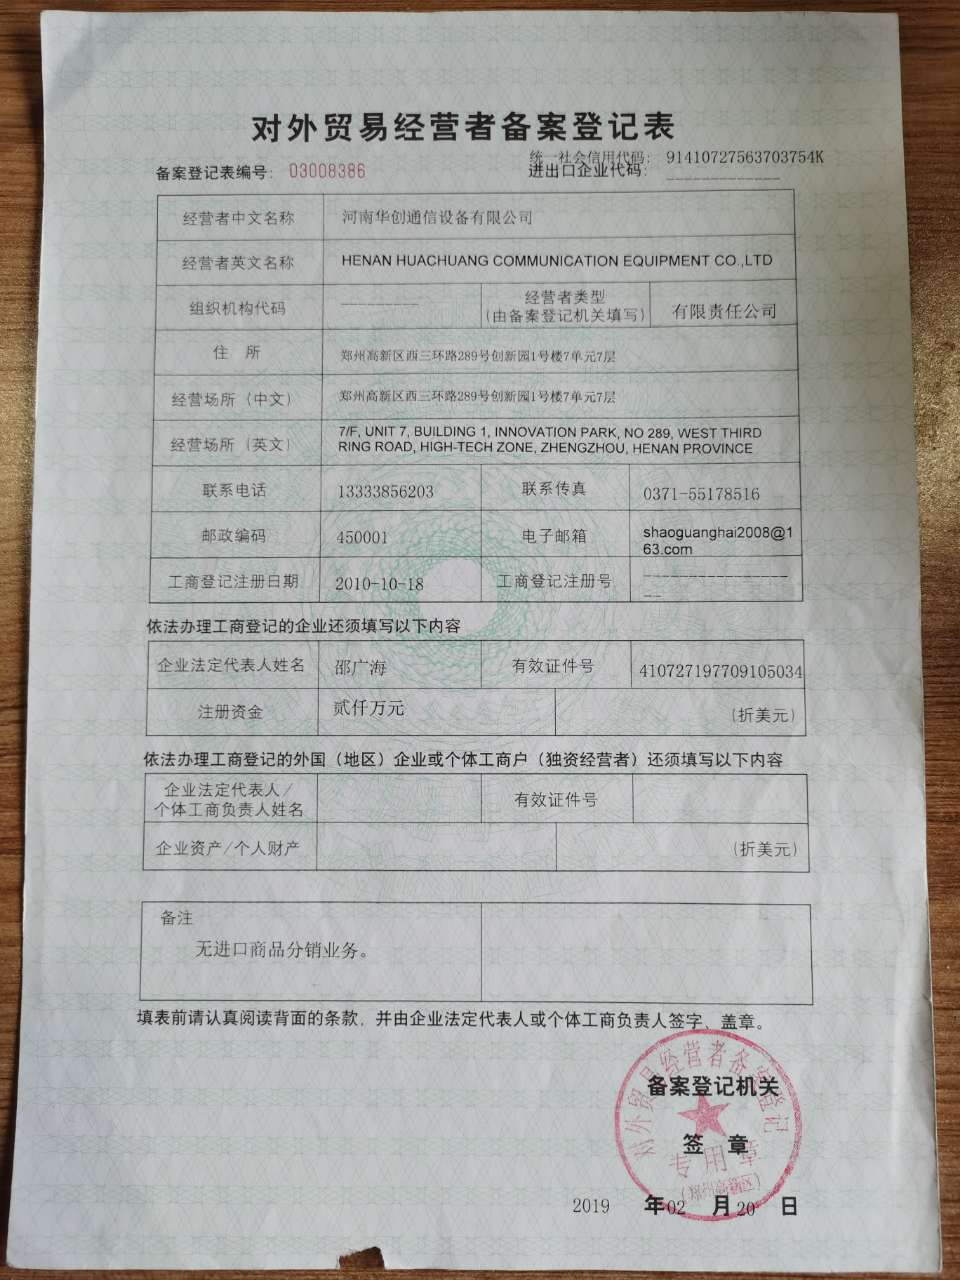 对外贸易经营者备案登记表
统一社会信用代码: 91410727563703754K
备案登记表编号: 03008386
进出口企业代码: _____________
经营者中文名称 河南华创通信设备有限公司
经营者英文名称 HENAN HUACHUANG COMMUNICATION EQUIPMENT CO.,LTD
组织机构代码 ---------- 经营者类型
(由备案登记机关填写) 有限责任公司
住 所 郑州高新区西三环路289号创新园1号楼7单元7层
经营场所（中文） 郑州高新区西三环路289号创新园1号楼7单元7层
经营场所（英文） 7/F, UNIT 7, BUILDING 1, INNOVATION PARK, NO 289, WEST THIRD
RING ROAD, HIGH-TECH ZONE, ZHENGZHOU, HENAN PROVINCE
联系电话 13333856203 联系传真 0371-55178516
邮政编码 450001 电子邮箱 shaoguanghai2008@1
63.com
工商登记注册日期 2010-10-18 工商登记注册号 ------------------
依法办理工商登记的企业还须填写以下内容
企业法定代表人姓名 邵广海 有效证件号 410727197709105034
注册资金 贰仟万元 (折美元)
依法办理工商登记的外国（地区）企业或个体工商户（独资经营者）还须填写以下内容
企业法定代表人/
个体工商负责人姓名 有效证件号
企业资产/个人财产 (折美元)
备注
无进口商品分销业务。
填表前请认真阅读背面的条款，并由企业法定代表人或个体工商负责人签字、盖章。
对外贸易经营者备案登记
备案登记机关
签 章
专用章
2019 年 02 月 20 日